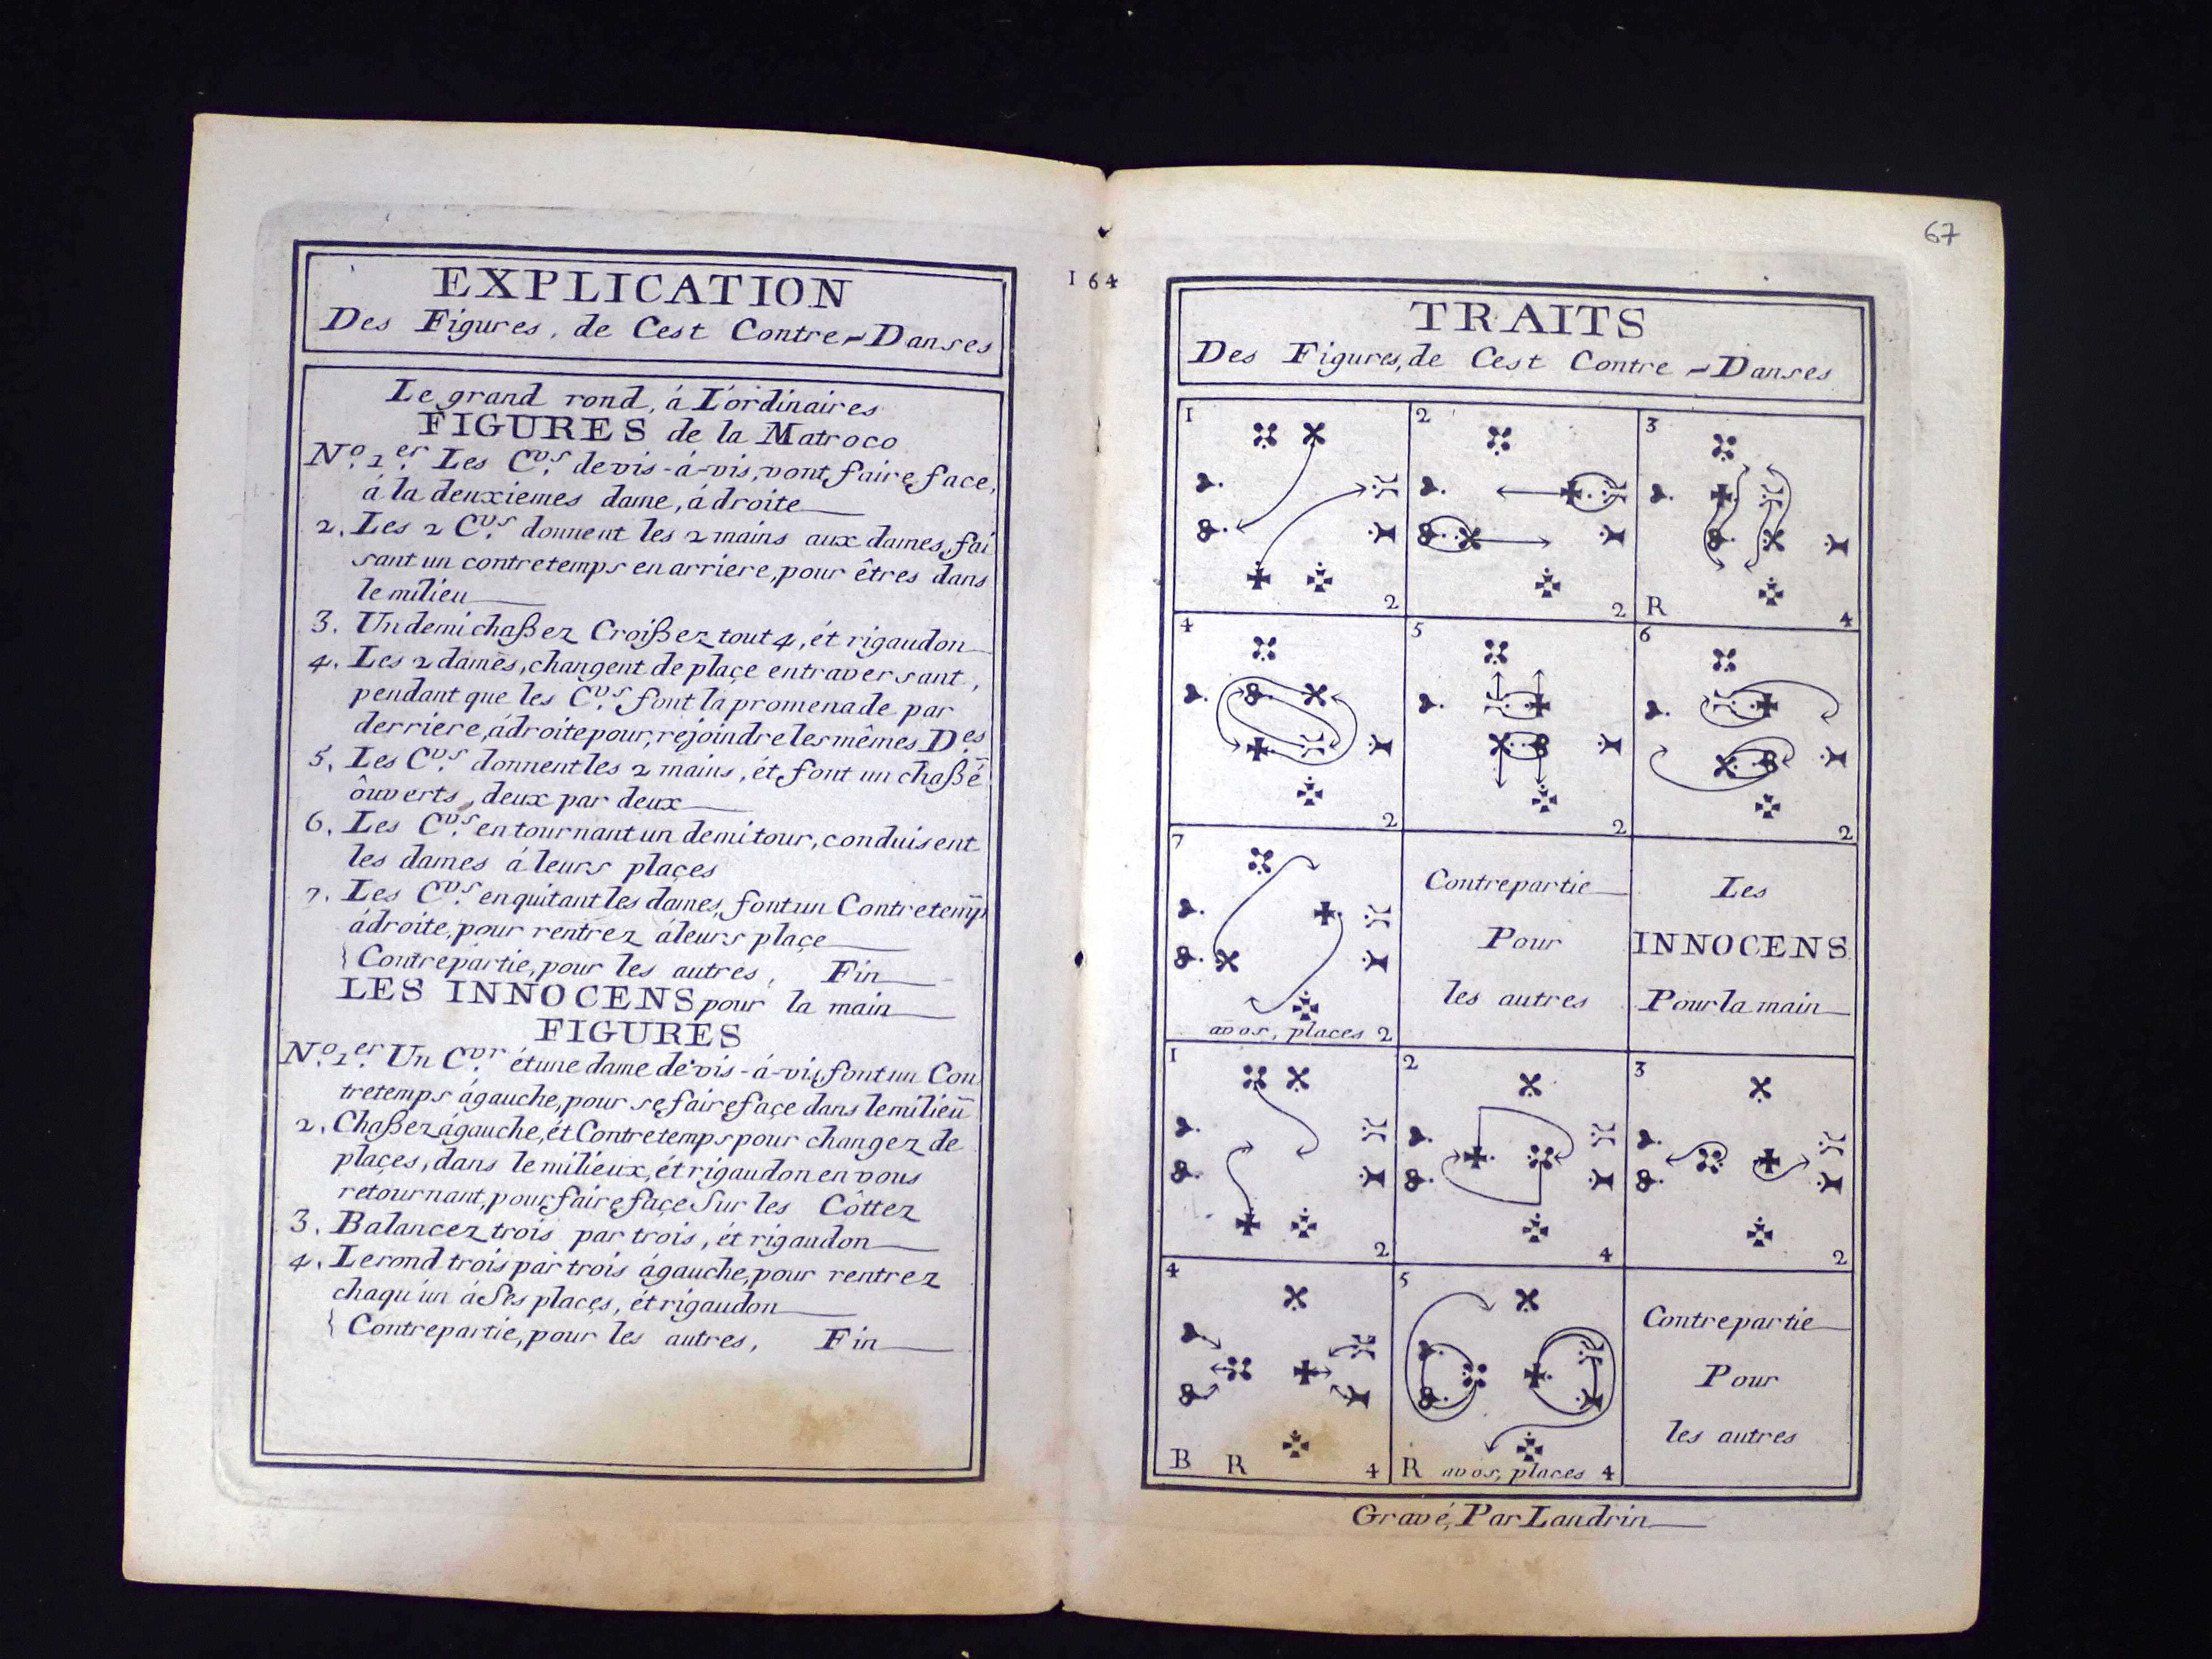 EXPLICATION
Des Figures, de Cest Contre-Danses
Le grand rond, á L'ordinaires
FIGURES de la Matroco
N.º 1.er Les C.vrs de vis-á-vis, vont faire face,
á la deuxiemes dame, á droite
2. Les 2 C.vrs donnent les 2 mains aux dames, fai
sant un contretemps en arriere, pour êtres dans
le milieu
3. Un demi chaßez Croißez tout 4, ét rigaudon
4. Les 2 dames, changent de plaçe en traversant,
pendant que les C.vrs font la promenade par
derriere, ádroite pour, rejoindre les mêmes D.es
5. Les C.vrs donnent les 2 mains, ét font un chaßé
ôuverts, deux par deux
6. Les C.vrs en tournant un demi tour, conduisent
les dames á leurs plaçes
7. Les C.vrs en quitant les dames, font un Contretemp
ádroite, pour rentrez áleurs plaçe
Contrepartie, pour les autres, Fin
LES INNOCENS pour la main
FIGURES
N.º 1.er Un C.vr ét une dame de vis-á-vis, font un Con
tretemps ágauche, pour se faire façe dans le milieu
2. Chaßez ágauche, ét Contretemps pour changez de
plaçes, dans le milieux, ét rigaudon en vous
retournant, pour faire façe Sur les Côttez
3. Balancez trois par trois, ét rigaudon
4. Le rond trois par trois ágauche, pour rentrez
chaqu'un á Ses plaçes, ét rigaudon
Contrepartie, pour les autres, Fin
164
67
TRAITS
Des Figures, de Cest Contre-Danses
1
2
2
2
3
R
4
4
2
5
2
6
2
7
avos, places 2
Contrepartie
Pour
les autres
Les
INNOCENS
Pour la main
1
2
2
4
3
2
4
B R 4
5
R avos, places 4
Contrepartie
Pour
les autres
Gravé, Par Landrin